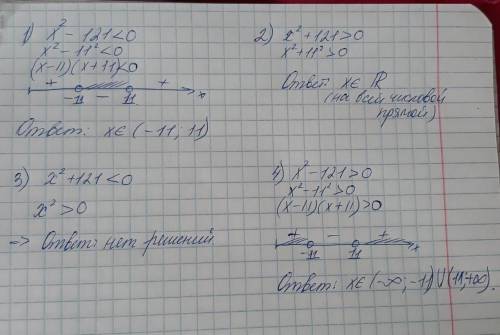 1) x² - 121 < 0
x² - 11² < 0
(x-11)(x+11) < 0
+ - +
-11 11 x
Ответ: x∈ (-11; 11)
2) x² + 121 > 0
x² + 11² > 0
Ответ: x∈ ℝ
(на всей числовой
прямой)
3) x² + 121 < 0
x² > 0
=> Ответ: нет решений
4) x² - 121 > 0
x² - 11² > 0
(x-11)(x+11) > 0
+ - +
-11 11 x
Ответ: x∈ (-∞; -11)∪(11; +∞).